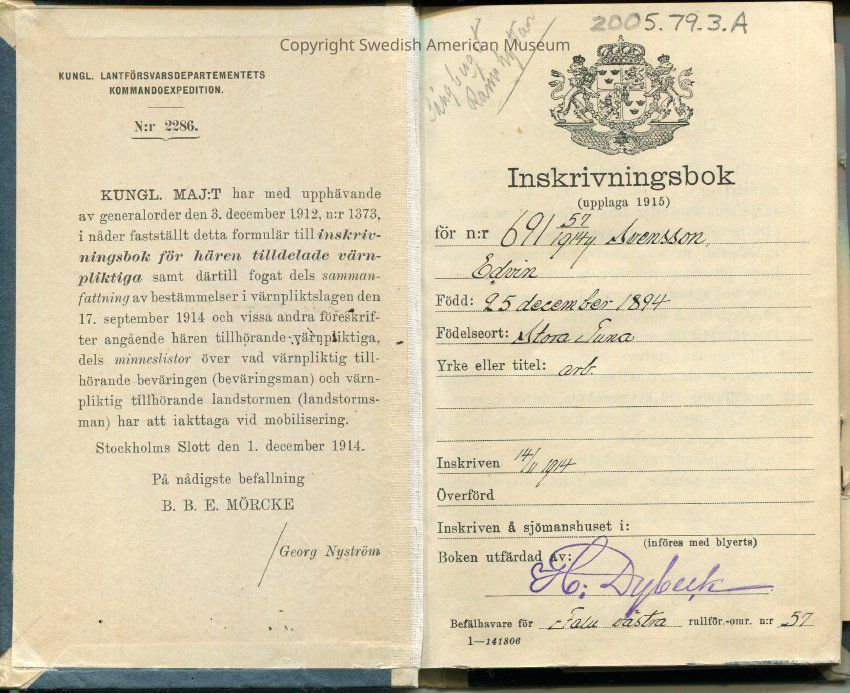 Copyright Swedish American Museum
KUNGL. LANTFÖRSVARSDEPARTEMENTETS
KOMMANDOEXPEDITION.
N:r 2286.
KUNGL. MAJ:T har med upphävande
av generalorder den 3. december 1912, n:r 1373,
i nåder fastställt detta formulär till inskriv-
ningsbok för hären tilldelade värn-
pliktiga samt därtill fogat dels samman-
fattning av bestämmelser i värnpliktslagen den
17. september 1914 och vissa andra föreskrif-
ter angående hären tillhörande värnpliktiga,
dels minneslistor över vad värnpliktig till-
hörande beväringen (beväringsman) och värn-
pliktig tillhörande landstormen (landstorms-
man) har att iakttaga vid mobilisering.
Stockholms Slott den 1. december 1914.
På nådigste befallning
B. B. E. MÖRCKE
/Georg Nyström
2005.79.3.A
Inskrivningsbok
(upplaga 1915)
för n:r 691 57/1914 Svensson,
Edvin
Född: 25 december 1894
Födelseort: Stora Tuna
Yrke eller titel: arb.
Inskriven 14/11 1914
Överförd
Inskriven å sjömanshuset i:
(införes med blyerts)
Boken utfärdad av:
H. Dybeck
Befälhavare för Falu västra rullför.-omr. n:r 57
1—141806